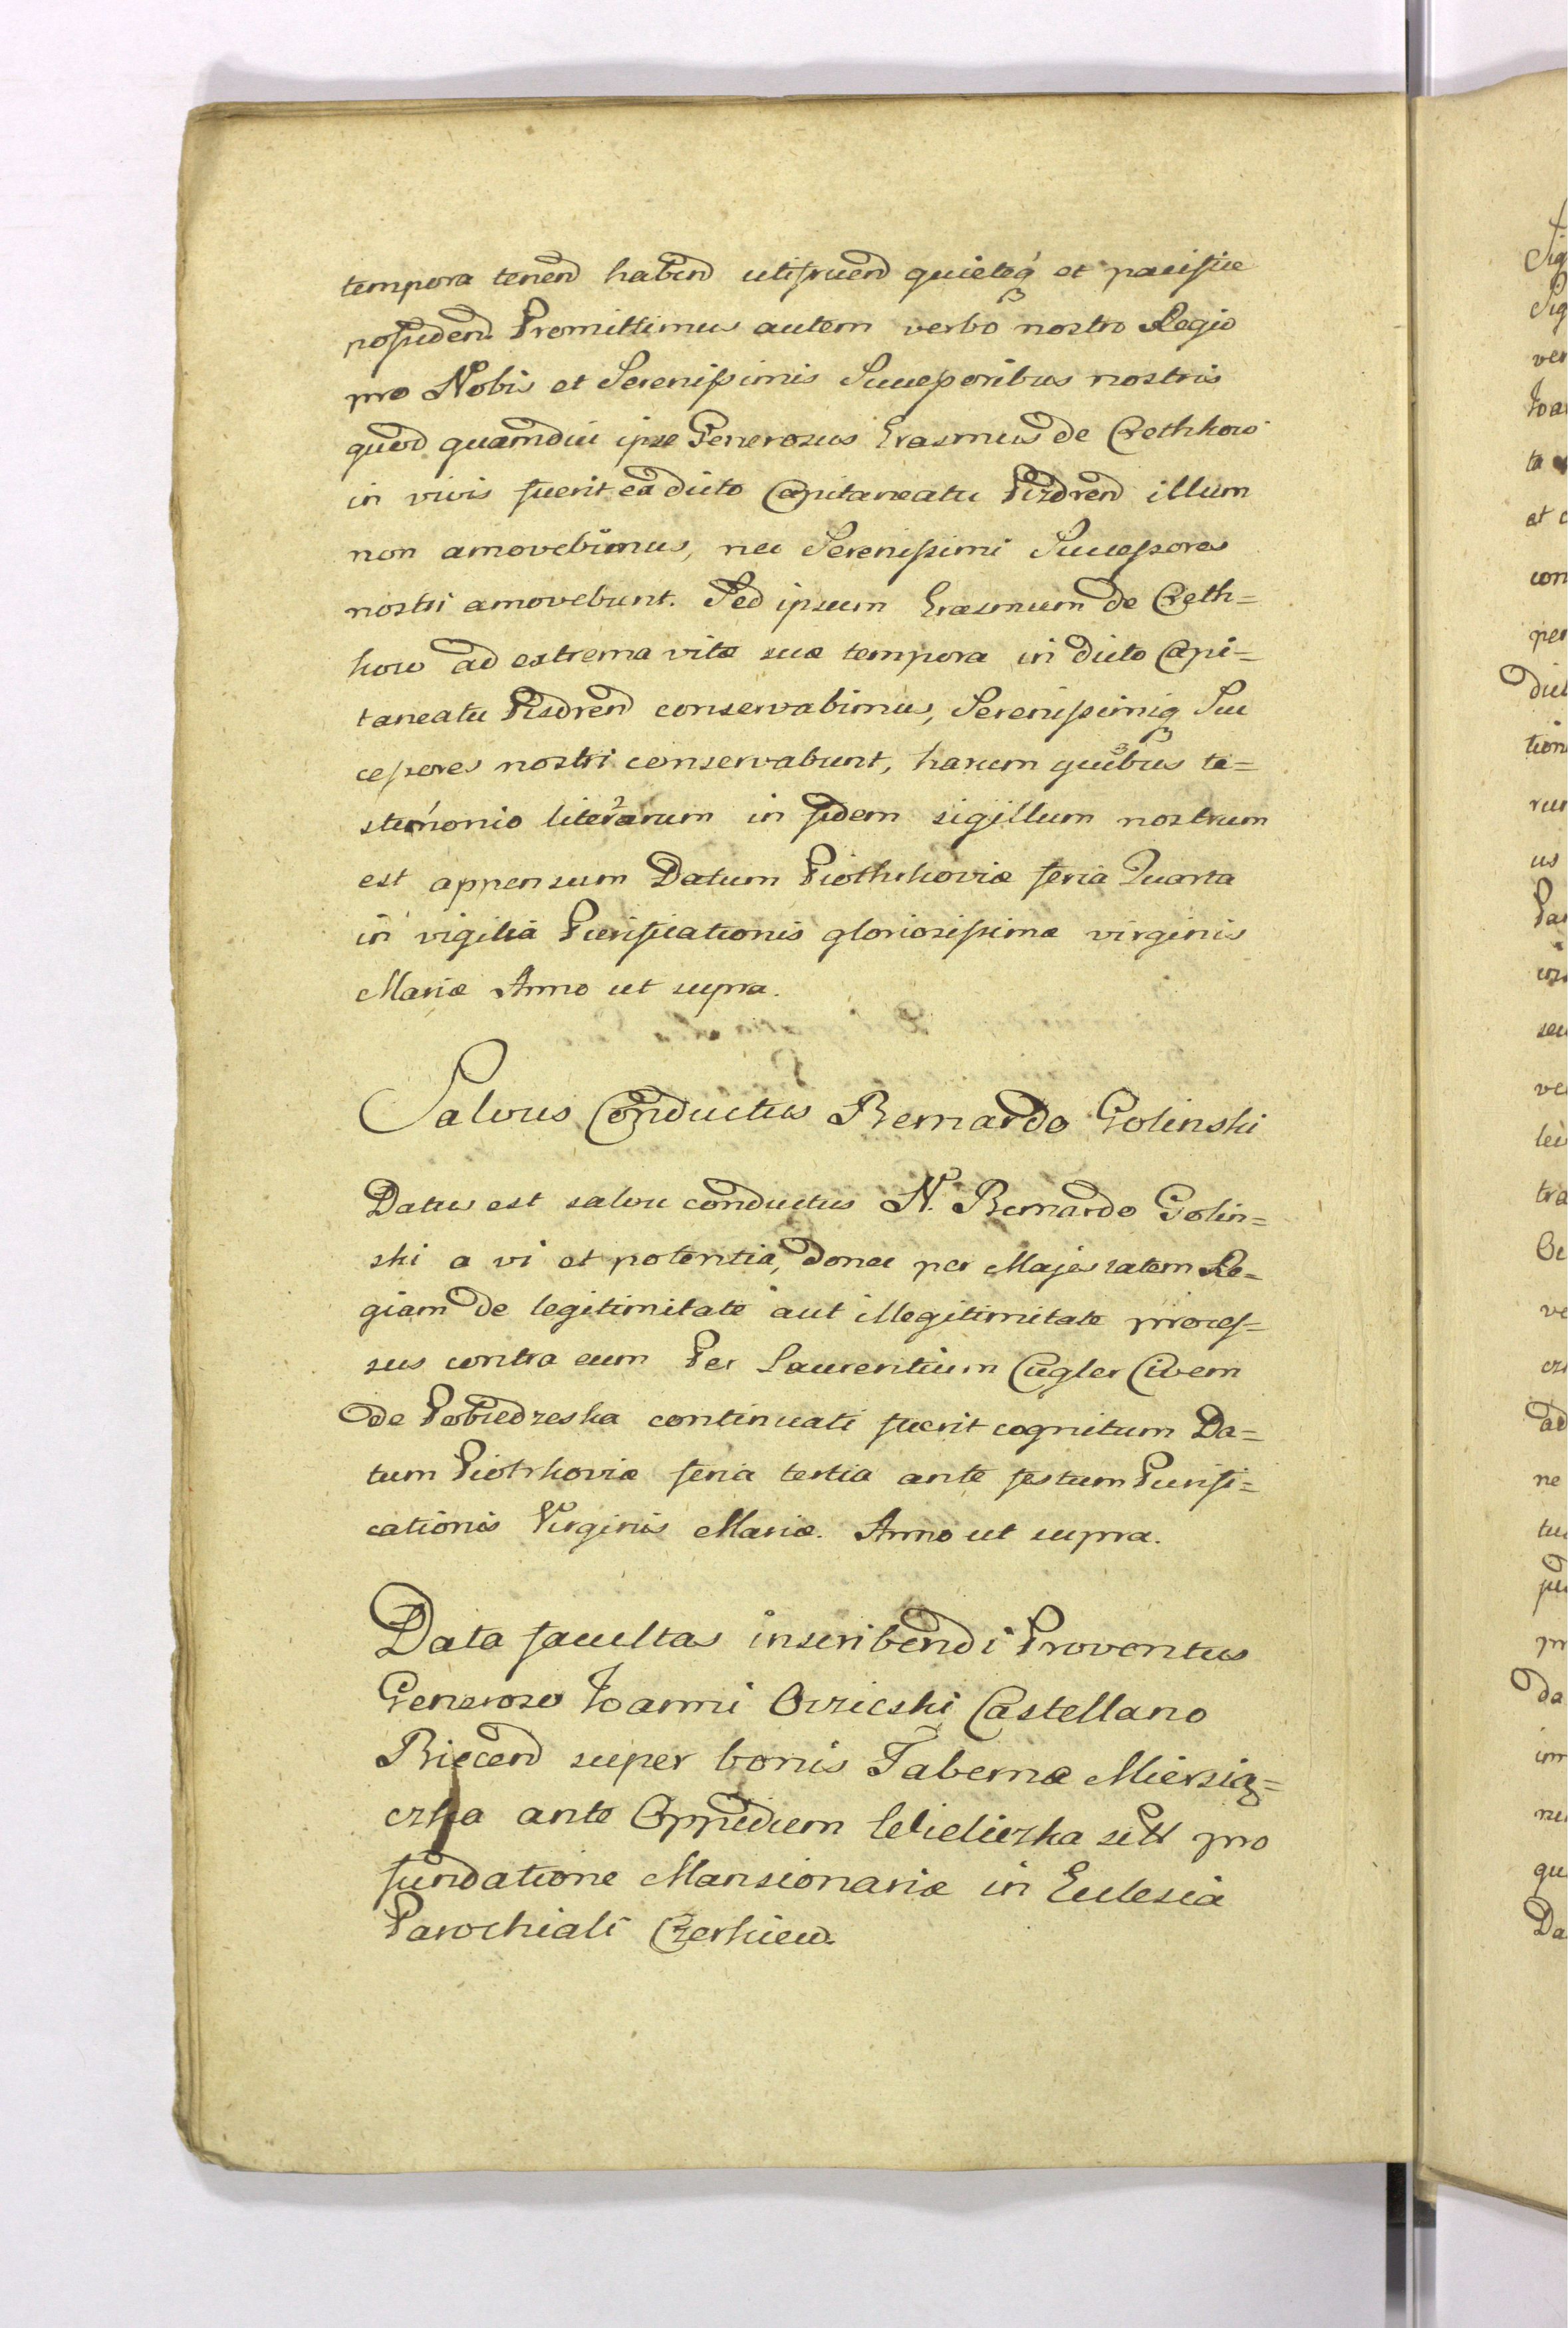 tempora tenend habend utifruend quieteq et pacifice
possidend. Promittimus autem verbo nostro Regio
pro Nobis et Serenissimis Successoribus nostris
quod quamdiu ipse Generosus Erasmus de Crethkow
in vivis fuerit ea dicto Capitaneatu Pizdrend illum
non amovebimus, nec Serenissimi Successores
nostri amovebunt. Sed ipsum Erasmum de Creth=
kow ad extrema vitæ suæ tempora in dicto Capi=
taneatu Pisdrend conservabimus, Serenissimiq Suc
cessores nostri conservabunt, harum quibus te=
stimonio literarum in fidem sigillum nostrum
est appensum Datum Piothrkoviæ feria Quarta
in vigilia Purificationis gloriosissimæ virginis
Mariæ Anno ut supra.
Salvus Conductus Bernardo Golinski
Datus est salvu conductus N. Bernardo Golin=
ski a vi et potentia, donec per Majestatem Re=
giam de legitimitate aut illegitimitate proces=
sus contra eum Per Laurentium Cugler Civem
de Pobiedzeska continuati fuerit cognitum Da=
tum Piotrkoviæ feria tertia ante festum Purifi=
cationis Virginis Mariæ. Anno ut supra.
Data facultas inscribendi Proventus
Generoso Joanni Ovzieski Castellano
Biecend super bonis Tabernæ Miersią=
czka ante Oppidum Wieliczka sitt pro
fundatione Mansionariæ in Eulesia
Parochiali Czerkiew.